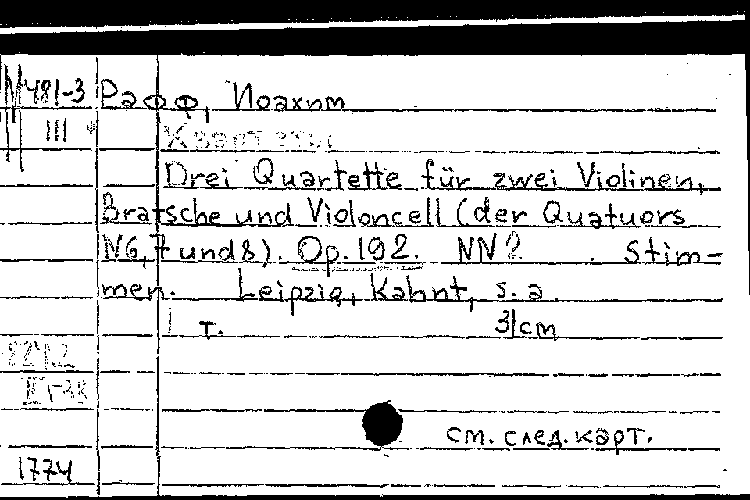 N481-3 Рафф, Иоахим
III Квартеты
Drei Quartette für zwei Violinen,
Bratsche und Violoncell (der Quatuors
N6,7 und 8). Op. 192. NN2. Stim-
men. Leipzig, Kahnt, s. a.
1 т. 31cm
см. след. карт.
1774